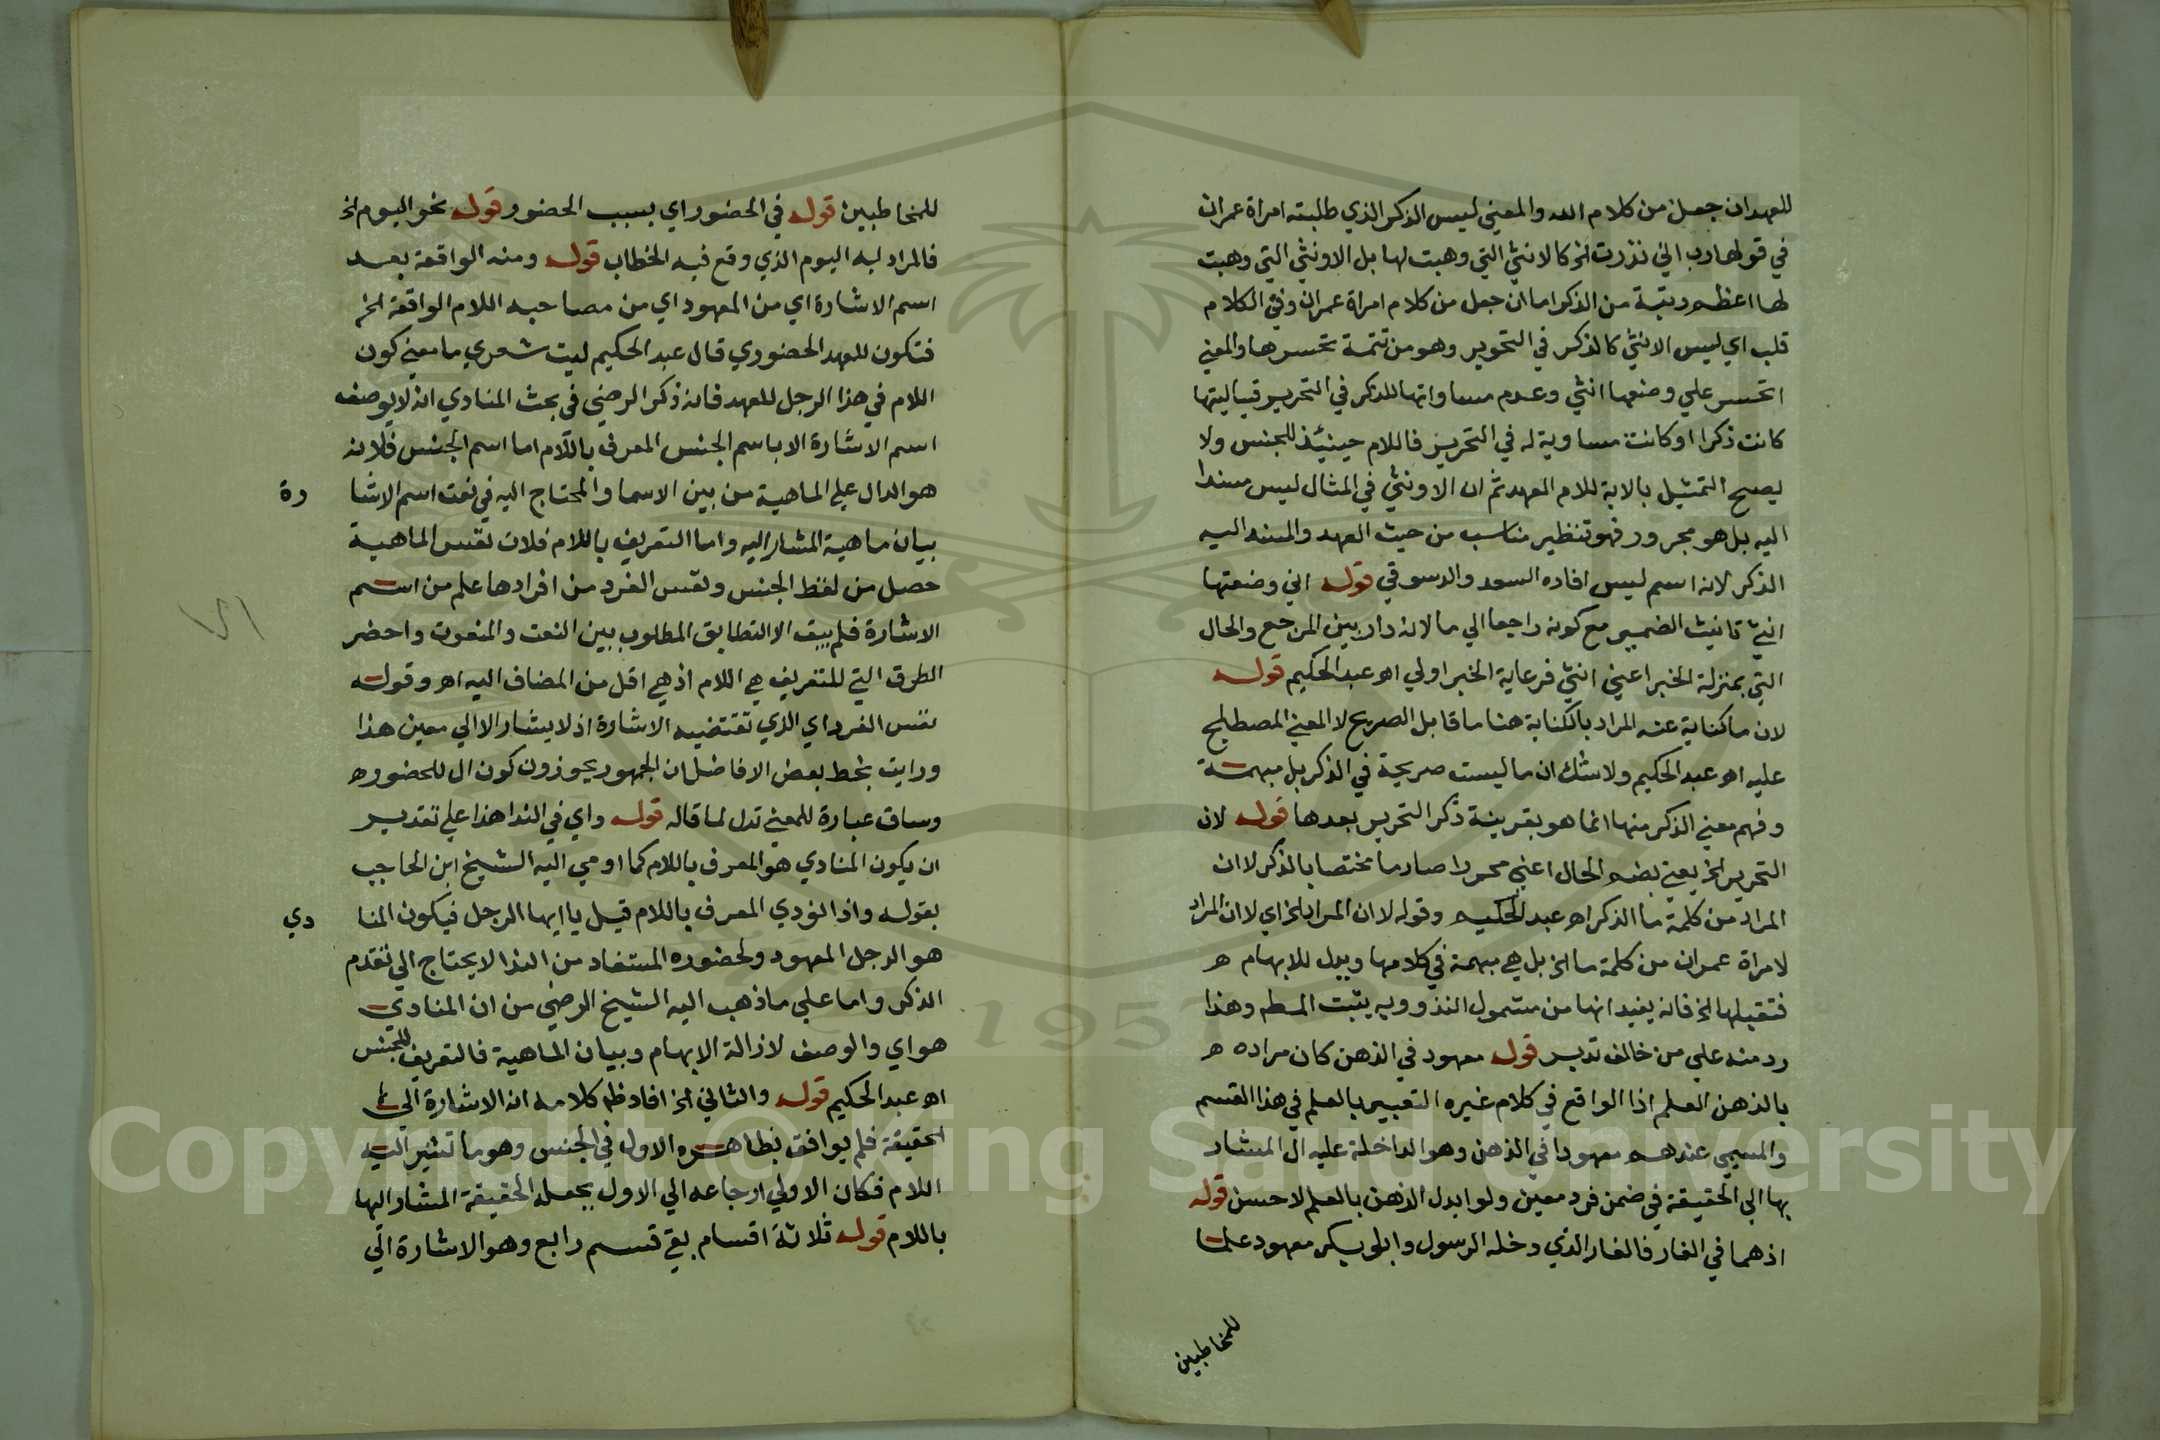 للعهد ان جعل من كلام الله والمعني ليس الذكر الذي طلبته امراة عمران
في قولها رب اني نذرت الخ كالانثي التي وهبت لها بل الاونثي التي وهبت
لها اعظم رتبة من الذكر اما ان جعل من كلام امراة عمران وفي الكلام
قلب اي ليس الانثي كالذكر في التحرير وهو من تتمة تحسرها والمعني
اتحسر علي وضعها انثي وعدم مساواتها للذكر في التحرير فياليتها
كانت ذكرا او كانت مساوية له في التحرير فاللام حينيئذ للجنس ولا
يصح التمثيل بالاية للام العهد ثم ان الاونثي في المثال ليس مسندا
اليه بل هو مجرور فهو تنظير مناسب من حيث العهد والمسند اليه
الذكر لانه اسم ليس افاده السعد والدسوقي قوله اني وضعتها
انثي تانيث الضمير مع كونه راجعا الي ما لانه دار بين المرجع والحال
التي بمنزلة الخبر اعني انثي فرعاية الخبر اولي اه عبد الحكيم قوله
لان ما كناية عنه المراد بالكناية هنا ما قابل الصريح لا المعني المصطلح
عليه اه عبد الحكيم ولا شك ان ما ليست صريحة في الذكر بل مبهمة
وفهم معني الذكر منها انما هو بقرينة ذكر التحرير بعدها قوله لان
التحرير الخ يعني بضم الحال اعني محررا صار ما مختصا بالذكر لا ان
المراد من كلمة ما الذكر اه عبد الحكيم وقوله لا ان المراد الخ اي لا ان المراد
لامراة عمران من كلمة ما الخ بل هي مبهمة في كلامها ويدل للابهام ه
فتقبلها الخ فانه يفيد انها من مشمول النذر وبه يثبت المطم وهذا
رد منه علي من خالف تدبر قوله معهود في الذهن كان مراده ه
بالذهن العلم اذا الواقع في كلام غيره التعبير بالعلم في هذا القسم
والمسمي عندهم معهودا في الذهن وهو الداخلة عليه ال المشار
بها الي الحقيقة في ضمن فرد معين ولو ابدل الذهن بالعلم لاحسن قوله
اذهما في الغار فالغار الذي دخله الرسول وابو بكر معهود علما
للمخاطبين
للمخاطبين قوله في الحضور اي بسبب الحضور قوله نحو اليوم الخ
فالمراد به اليوم الذي وقع فيه الخطاب قوله ومنه الواقعة بعد
اسم الاشارة اي من المعهود اي من مصاحبه اللام الواقعة الخ
فتكون للعهد الحضوري قال عبد الحكيم ليت شعري ما معني كون
اللام في هذا الرجل للعهد فانه ذكر الرضي في بحث المنادي انه لا يوصف
اسم الاشارة الا باسم الجنس المعرف باللام اما اسم الجنس فلانه
هو الدال علي الماهية من بين الاسما والمحتاج اليه في نعت اسم الاشا
رة
بيان ماهية المشار اليه واما التعريف باللام فلان نفس الماهية
حصل من لفظ الجنس ونفس الفرد من افرادها علم من اسم
الاشارة فلم يبق الا التطابق المطلوب بين النعت والمنعوت واحضر
الطرق التي للتعريف هي اللام اذ هي اقل من المضاف اليه اه وقوله
نفس الفرد اي الذي تقتضيه الاشارة اذ لا يشار الا الي معين هذا
ورايت بخط بعض الافاضل ان الجمهور يجوزون كون ال للحضور ه
وساق عبارة للمغني تدل لما قاله قوله واي في الندا هذا علي تقدير
ان يكون المنادي هو المعرف باللام كما اومي اليه الشيخ ابن الحاجب
بقوله واذا نودي المعرف باللام قيل يا ايها الرجل فيكون المنا
دي
هو الرجل المعهود ولحضوره المستفاد من الندا لا يحتاج الي تقدم
الذكر واما علي ما ذهب اليه الشيخ الرضي من ان المنادي
هو اي والوصف لازالة الابهام وبيان الماهية فالتعريف للجنس
اه عبد الحكيم قوله والثاني الخ افاد ظم كلامه ان الاشارة الي
الحقيقة فلم يوافق بظاهره الاول في الجنس وهو ما تشير اليه
اللام فكان الاولي ارجاعه الي الاول بجعله الحقيقة المشار اليها
باللام قوله ثلاثة اقسام بقي قسم رابع وهو الاشارة الي
1957
Copyright © King Saud University